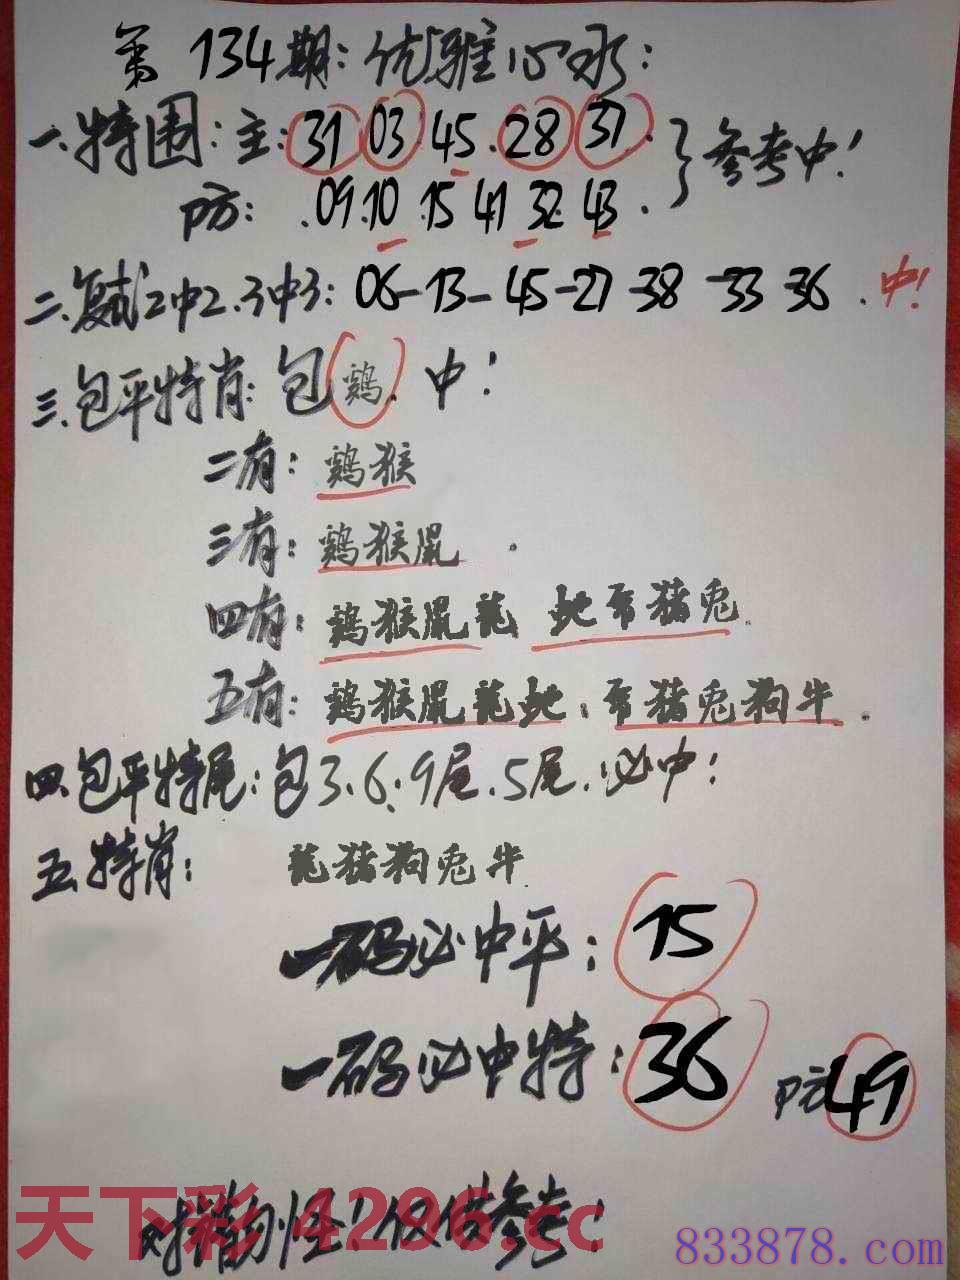 第134期:优雅心水:
一.特围:主:31 03 45.28 37. }参考中!
防: .09.10 .15 41 32 43 .
二.复式2中2.3中3: 06-13-45-27-38-33-36.中!
三.包平特肖:包鸡.中!
二有:鸡猴
三有:鸡猴鼠.
四有:鸡猴鼠龙 蛇马猪兔.
五有:鸡猴鼠龙蛇.马猪兔狗牛.
四.包平特尾:包3.6.9尾.5尾.必中!
五.特肖: 龙猪狗兔牛.
一码必中平: 15
一码必中特: 36 防49
错勿怪!仅供参考!
天下彩 4296.cc
833878.com